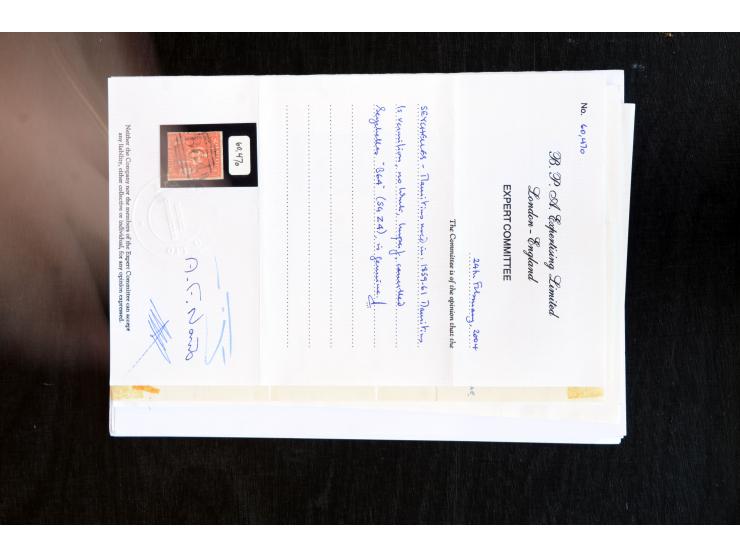 No. 60,470
B. P. A. Expertising Limited
London - England
EXPERT COMMITTEE
24th February, 2004
The Committee is of the opinion that the
SEYCHELLES - Mauritius used in, 1859-61 Mauritius,
1s vermilion, no wmk, imperf, cancelled
Seychelles "B64" (SG Z4), is genuine
60,470
Neither the Company nor the members of the Expert Committee can accept
any liability, either collective or individual, for any opinion expressed.